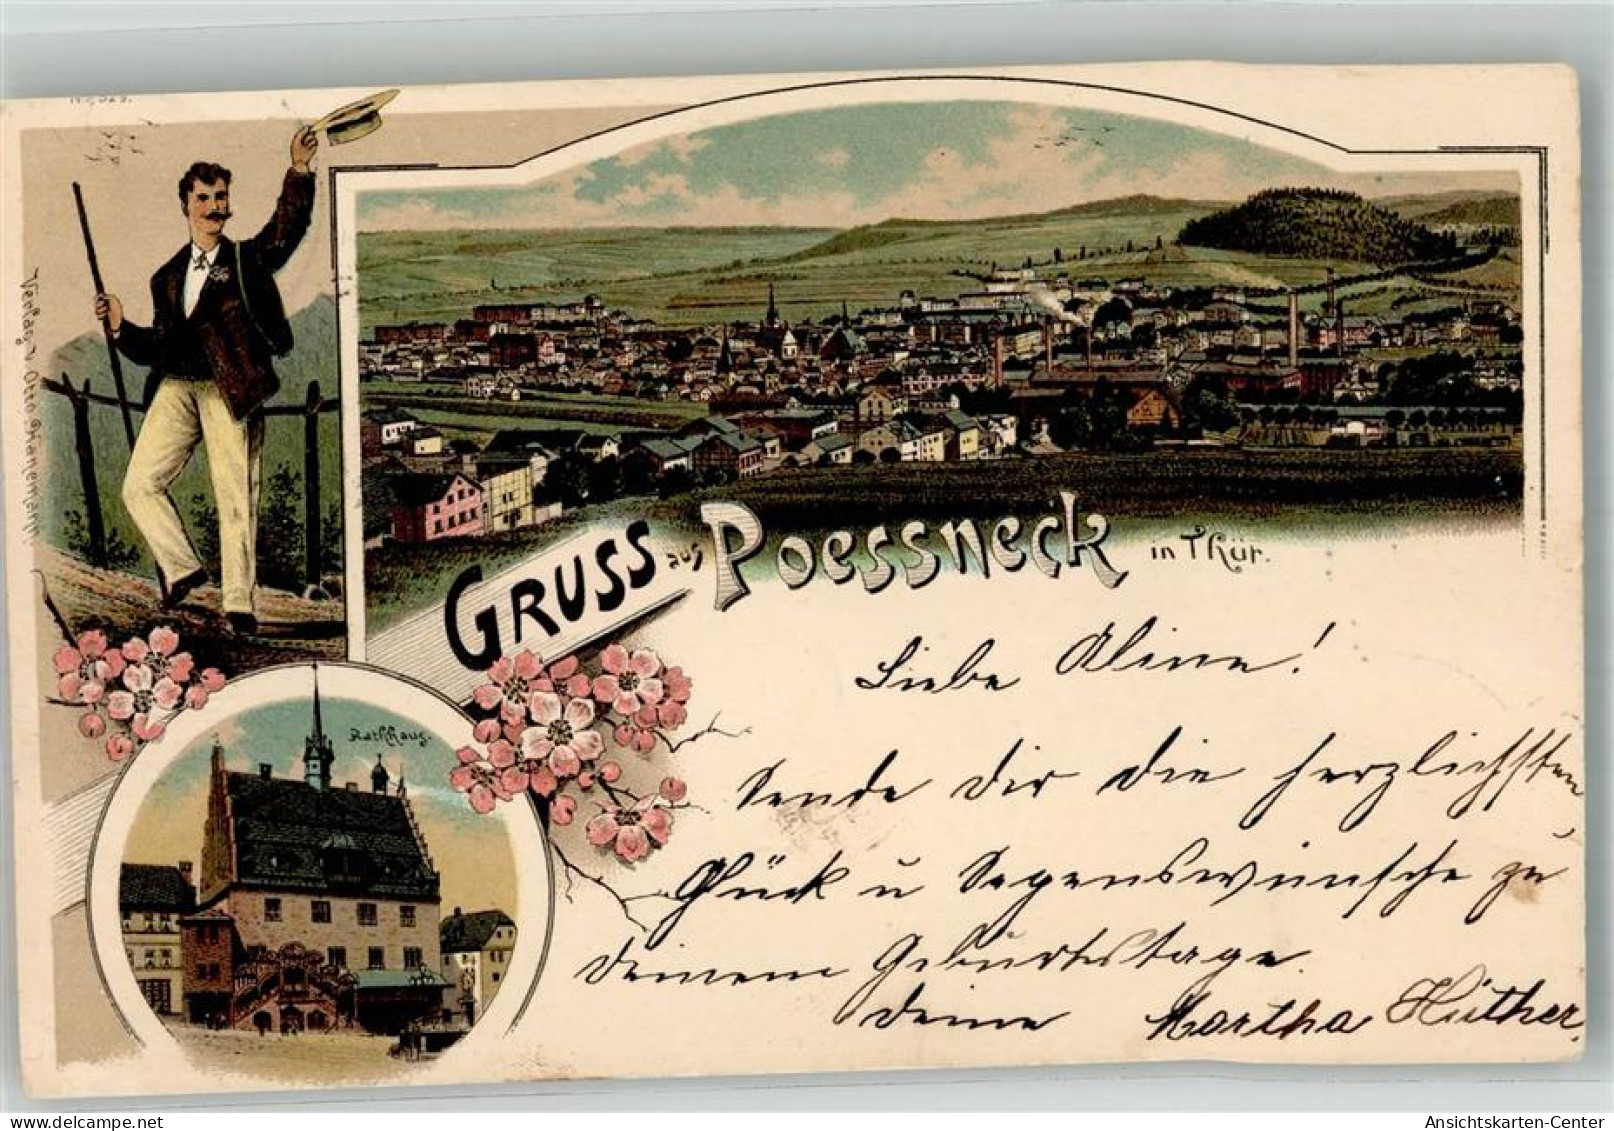 GRUSS aus Poessneck in Thür.
Verlag v. Otto Thanemann
Rathhaus.
Liebe Aline!
Sende Dir die herzlichsten
Glück u Segenswünsche zu
deinem Geburtstage.
deine Martha Hüther.
AnsichtsKarten-Center